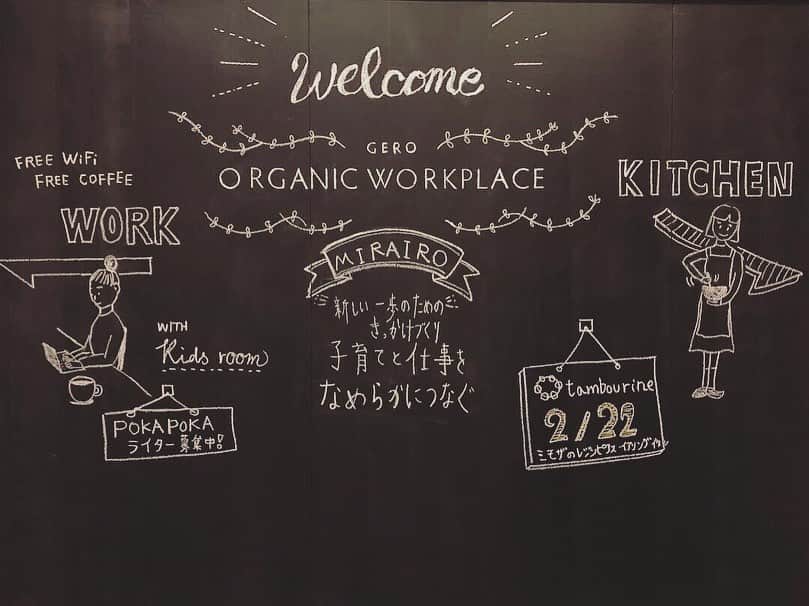 Welcome
GERO
ORGANIC WORKPLACE
FREE WiFi
FREE COFFEE
WORK
WITH
Kids room
POKAPOKA
ライター募集中!
MIRAIRO
新しい一歩のための
きっかけづくり
子育てと仕事を
なめらかにつなぐ
KITCHEN
tambourine
2/22
ミモザのレジンピアス イアリング